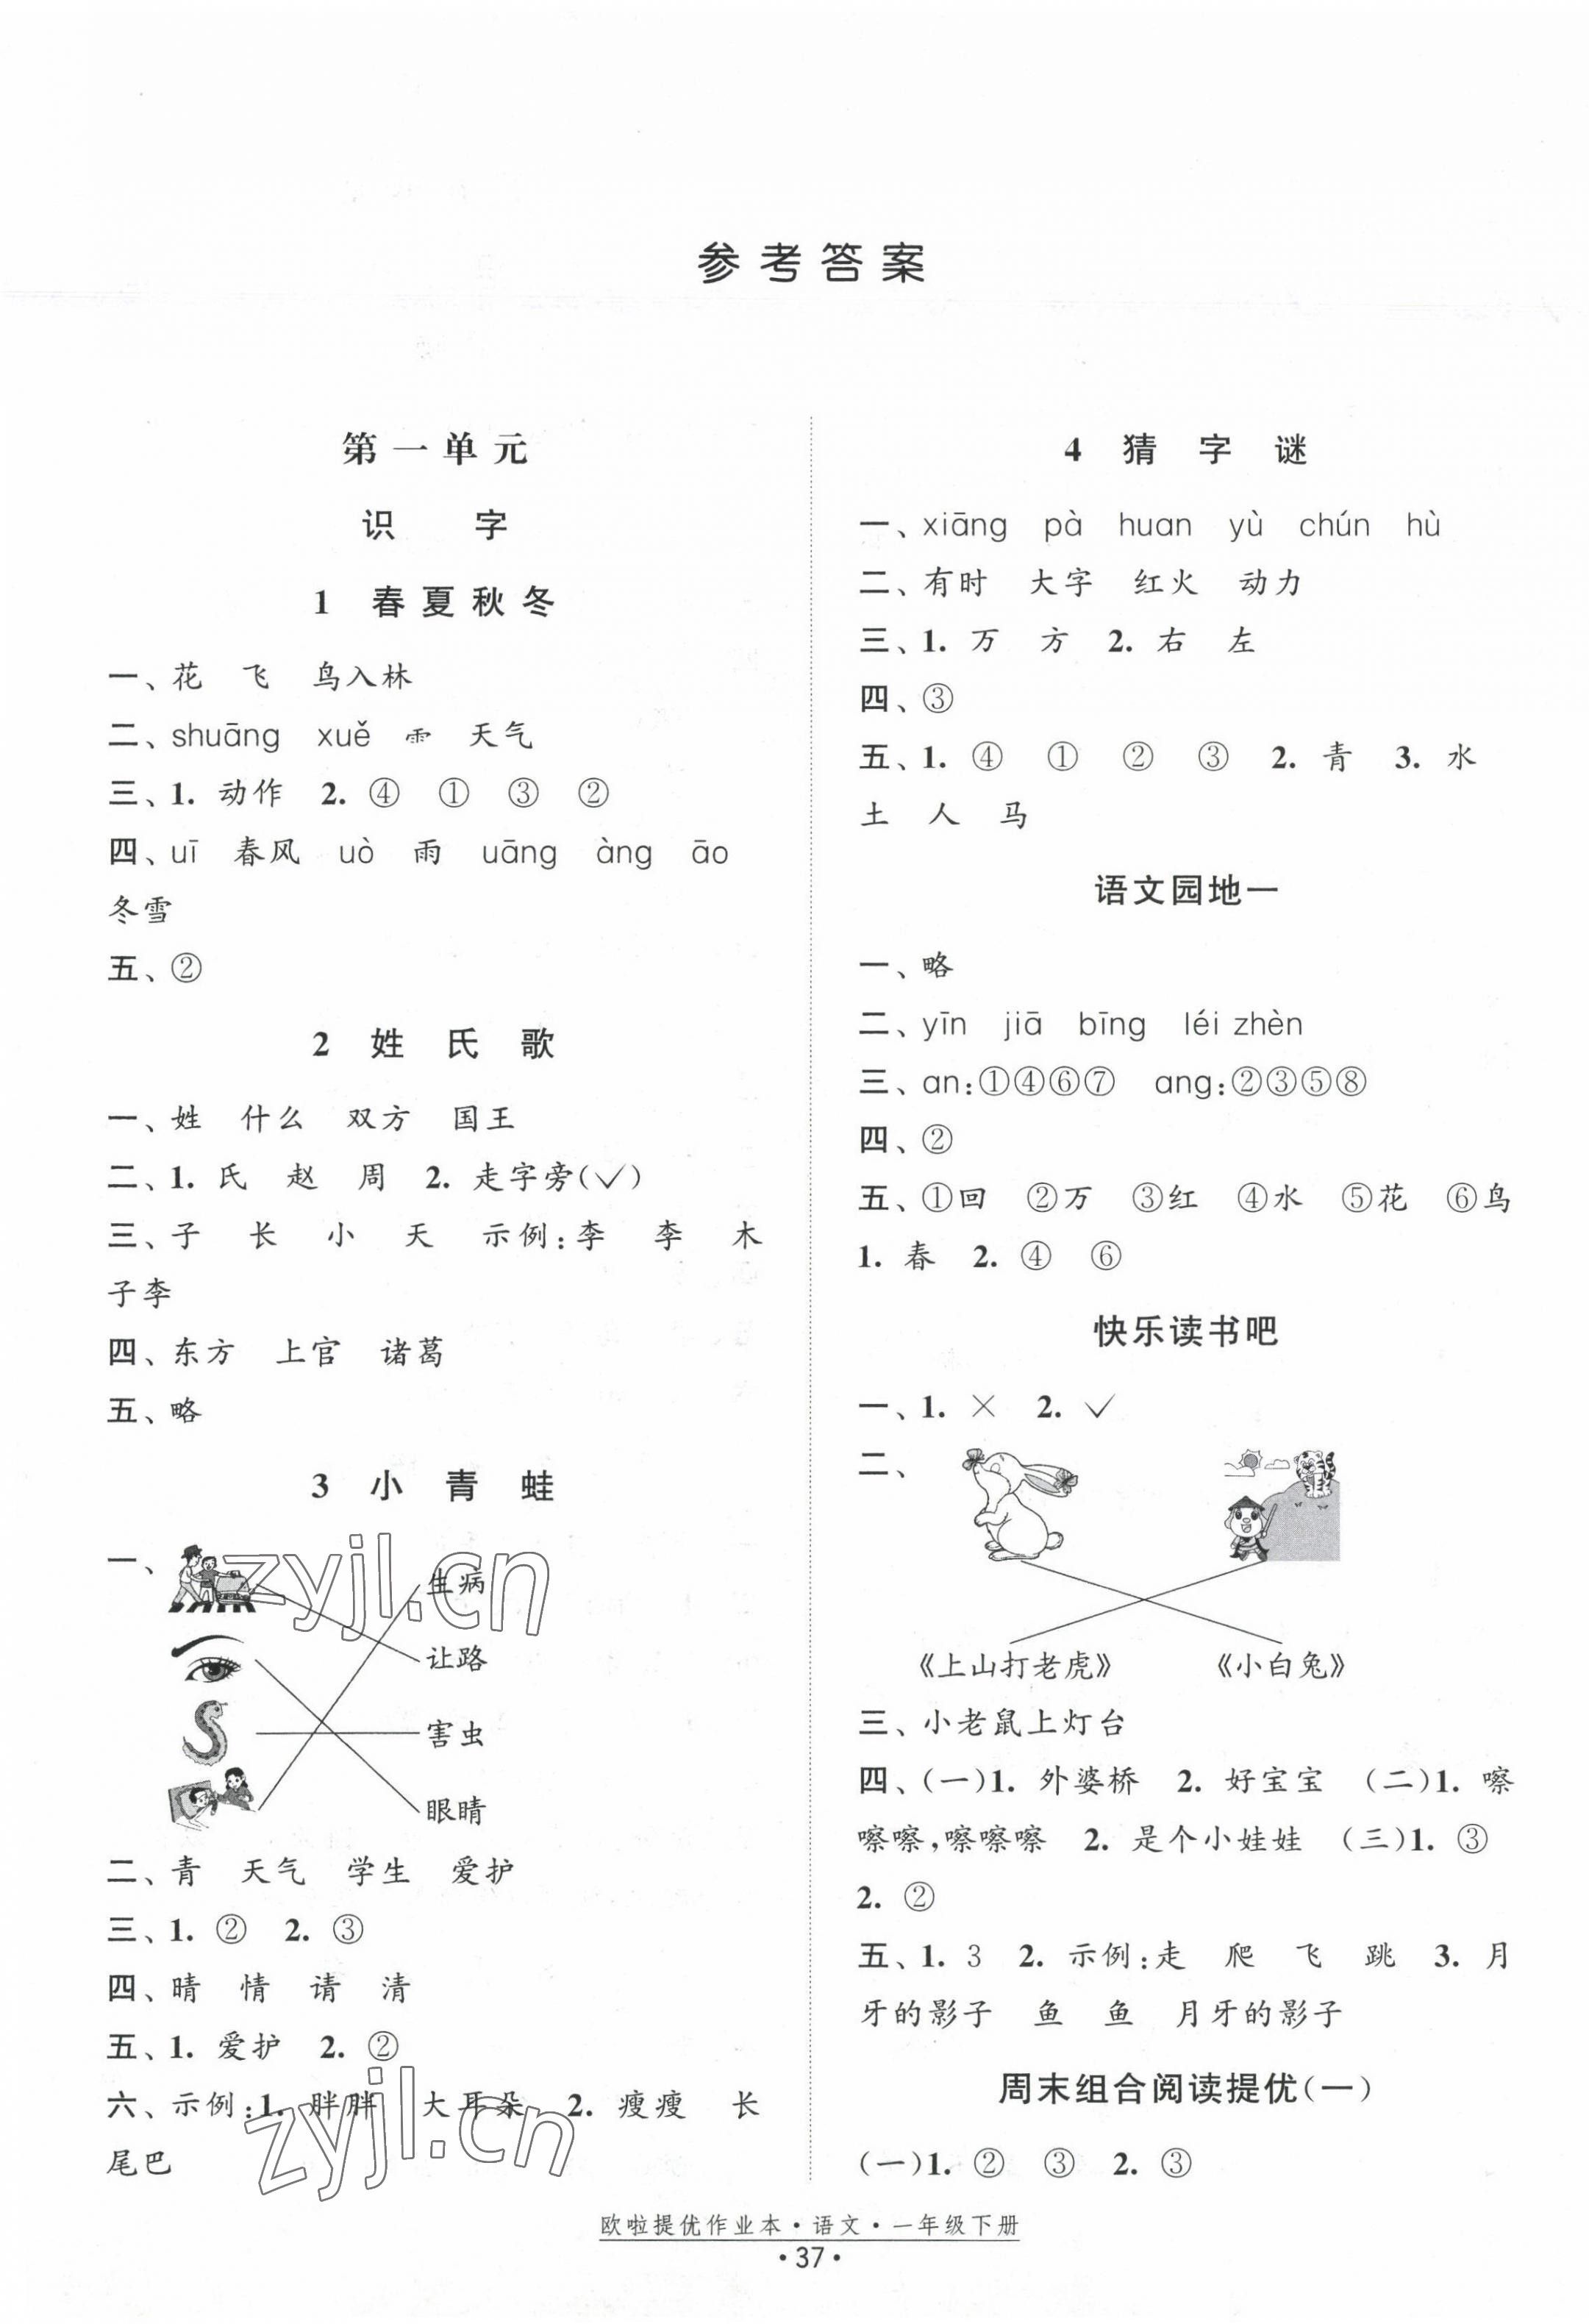 参考答案
第一单元
识 字
1 春夏秋冬
一、花 飞 鸟入林
二、shuāng xuě ⻗ 天气
三、1. 动作 2. ④ ① ③ ②
四、uī 春风 uò 雨 uāng àng āo
冬雪
五、②
2 姓 氏 歌
一、姓 什么 双方 国王
二、1. 氏 赵 周 2. 走字旁(✓)
三、子 长 小 天 示例:李 李 木
子李
四、东方 上官 诸葛
五、略
3 小 青 蛙
一、
生病
让路
害虫
眼睛
二、青 天气 学生 爱护
三、1. ② 2. ③
四、晴 情 请 清
五、1. 爱护 2. ②
六、示例:1. 胖胖 大耳朵 2. 瘦瘦 长
尾巴
zyjl.cn
zyjl.cn
4 猜 字 谜
一、xiāng pà huan yù chún hù
二、有时 大字 红火 动力
三、1. 万 方 2. 右 左
四、③
五、1. ④ ① ② ③ 2. 青 3. 水
土 人 马
语文园地一
一、略
二、yīn jiā bīng léi zhèn
三、an:①④⑥⑦ ang:②③⑤⑧
四、②
五、①回 ②万 ③红 ④水 ⑤花 ⑥鸟
1. 春 2. ④ ⑥
快乐读书吧
一、1. × 2. ✓
二、
《上山打老虎》 《小白兔》
三、小老鼠上灯台
四、(一)1. 外婆桥 2. 好宝宝 (二)1. 嚓
嚓嚓,嚓嚓嚓 2. 是个小娃娃 (三)1. ③
2. ②
五、1. 3 2. 示例:走 爬 飞 跳 3. 月
牙的影子 鱼 鱼 月牙的影子
周末组合阅读提优(一)
(一)1. ② ③ 2. ③
欧啦提优作业本·语文·一年级下册
·37·